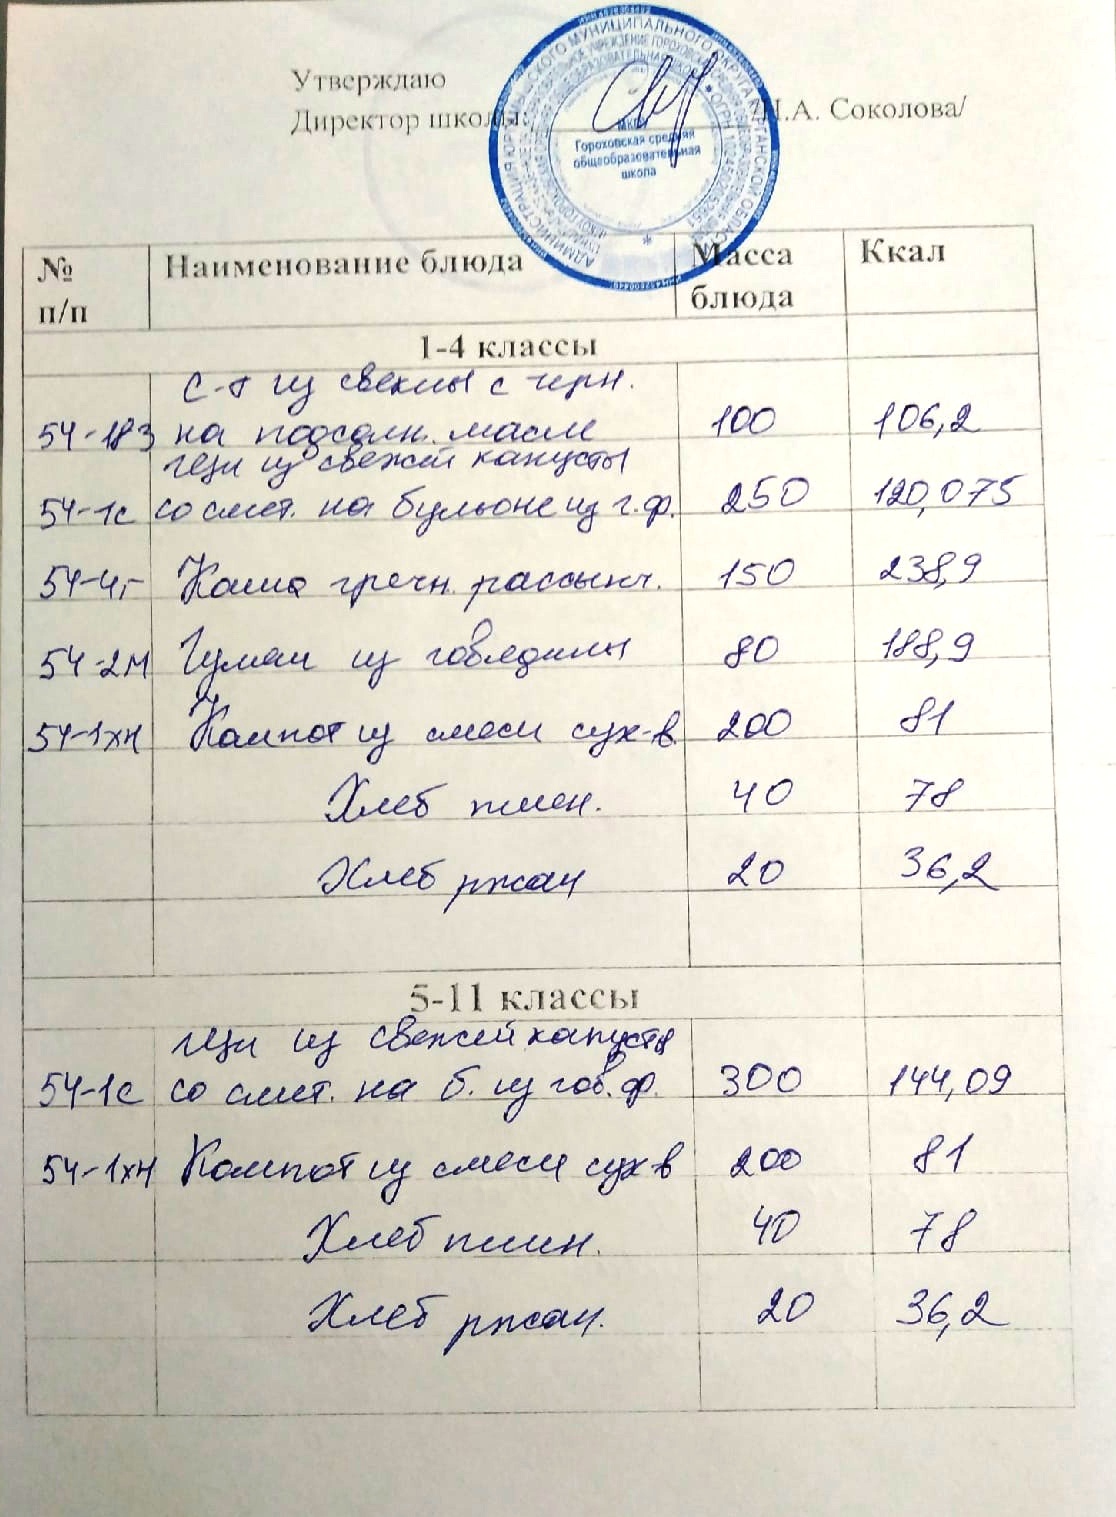 Утверждаю
Директор школы: Н.А. Соколова/
МКОУ
Гороховская средняя
общеобразовательная
школа
№ п/п Наименование блюда Масса блюда Ккал
1-4 классы
с-т из свеклы с черн.
54-18з на подсолн. масле 100 106,2
щи из свежей капусты
54-1с со смет. на бульоне из г.ф. 250 120,075
54-4г Каша гречн. рассыпч. 150 238,9
54-2м Гуляш из говядины 80 188,9
54-1хн Компот из смеси сух-в 200 81
Хлеб пшен. 40 78
Хлеб ржан 20 36,2
5-11 классы
щи из свежей капусты
54-1с со смет. на б. из гов. ф. 300 144,09
54-1хн Компот из смеси сух-в 200 81
Хлеб пшен. 40 78
Хлеб ржан. 20 36,2